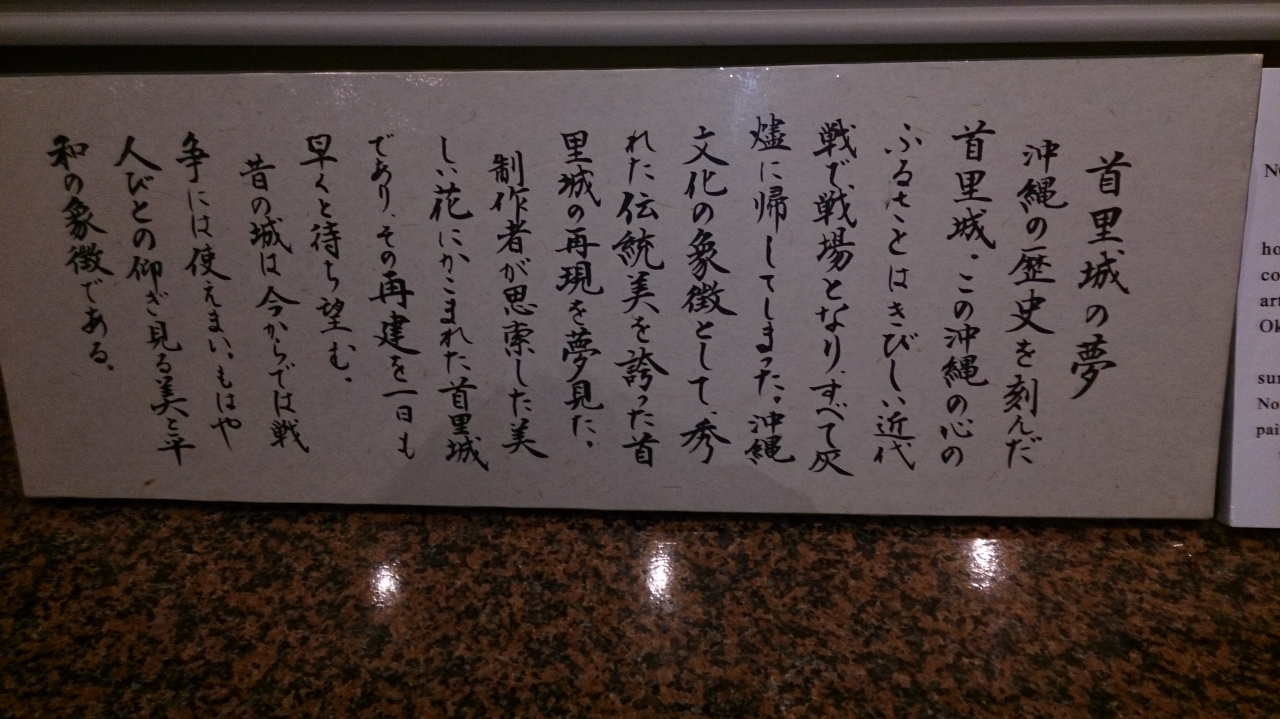 首里城の夢
沖縄の歴史を刻んだ
首里城。この沖縄の心の
ふるさとはきびしい近代
戦で、戦場となり、すべて灰
燼に帰してしまった。沖縄
文化の象徴として、秀
れた伝統美を誇った首
里城の再現を夢見た。
制作者が思索した美
しい花にかこまれた首里城
であり、その再建を一日も
早くと待ち望む。
昔の城は今からでは戦
争には使えまい。もはや
人びとの仰ぎ見る美と平
和の象徴である。
No
ho
co
art
Ok
sur
No
pai